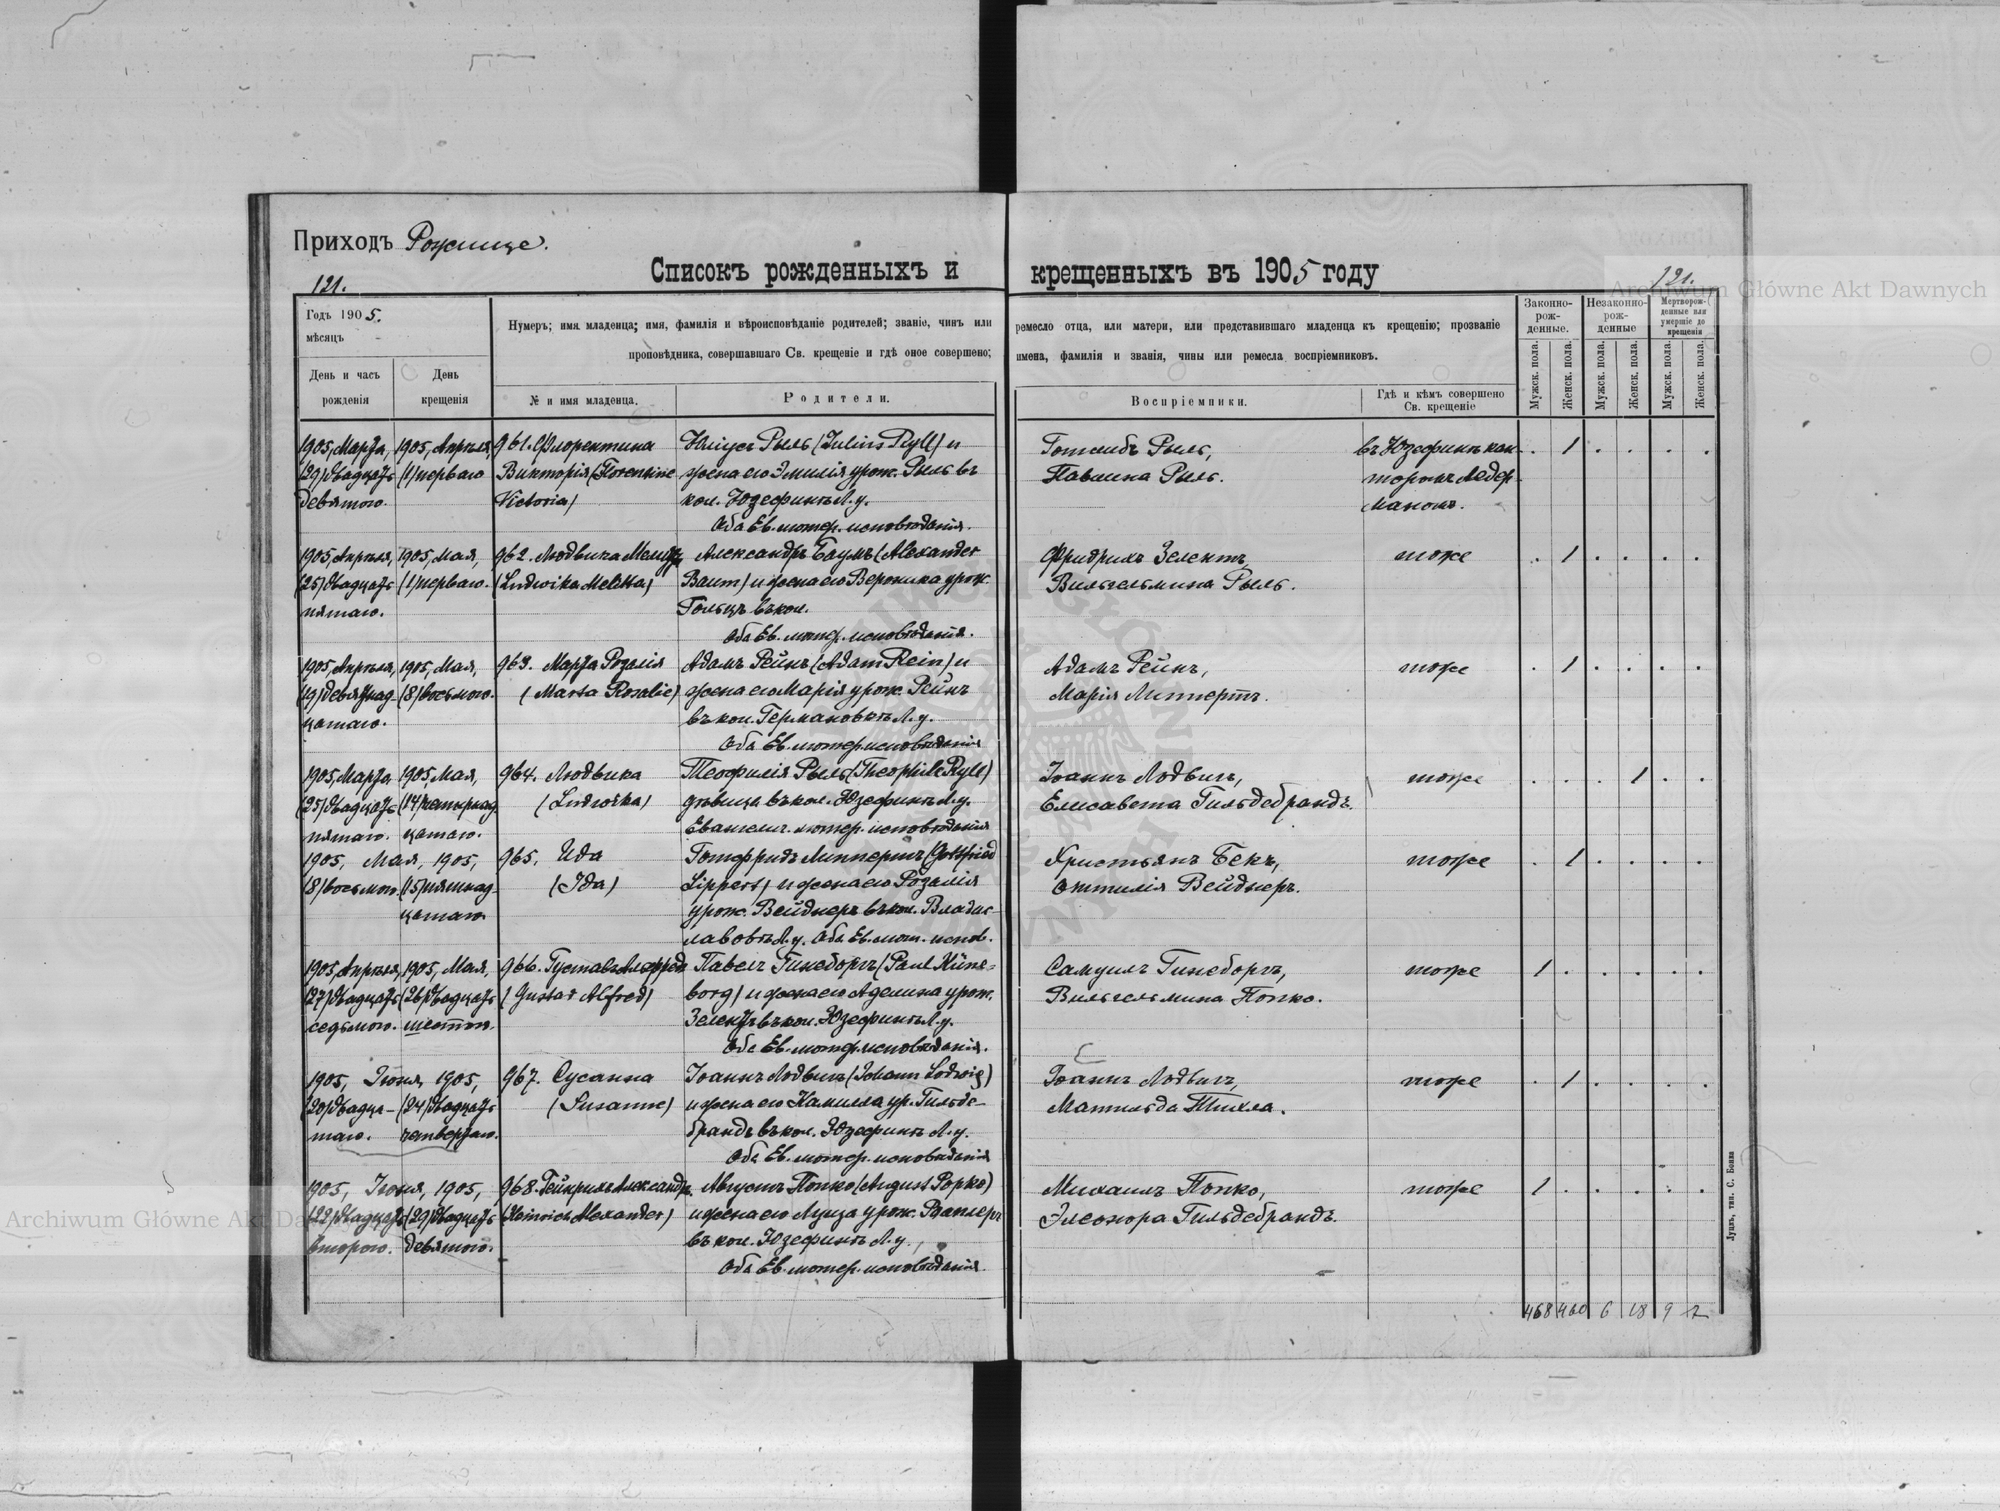 Приходъ Рожище.
121.
Списокъ рожденныхъ и крещенныхъ въ 1905 году
121.
Archiwum Główne Akt Dawnych
Годъ 1905.
мѣсяцъ
День и часъ рожденія
День крещенія
Нумеръ; имя младенца; имя, фамилія и вѣроисповѣданіе родителей; званіе, чинъ или ремесло отца, или матери, или представившаго младенца къ крещенію; прозваніе
проповѣдника, совершавшаго Св. крещеніе и гдѣ оное совершено; имена, фамилія и званія, чины или ремесла воспріемниковъ.
№ и имя младенца.
Родители.
Воспріемники.
Гдѣ и кѣмъ совершено
Св. крещеніе
Законно-
рож-
денные.
Незаконно-
рож-
денные
Мертворож-
денные или
умершіе до
крещенія
Мужск. пола.
Женск. пола.
Мужск. пола.
Женск. пола.
Мужск. пола.
Женск. пола.
1905, Марта,
(29) двадцать
девятого.
1905, Апрѣля,
(1) перваго
961. Флорентина
Викторія (Florentine
Victoria)
Юліусъ Рыль (Julius Ryll) и
жена его Эмилія урож. Рыль въ
кол. Юзефинѣ Л. у.
Оба Ев. лютер. исповѣданія.
Готлибъ Рыль,
Павлина Рыль.
въ Юзефинѣ кан
торомъ Ледер
маномъ.
. 1 . . . .
1905, Апрѣля,
(25) двадцать
пятаго.
1905, Мая,
(1) перваго.
962. Людвика Мелитта
(Ludwika Melitta)
Александръ Баумъ (Alexander
Baum) и жена его Вероника урож.
Гольцъ въ кол.
Оба Ев. лютер. исповѣданія.
Фридрихъ Зелентъ,
Вильгельмина Рыль.
тоже
. 1 . . . .
1905, Апрѣля,
(19) девятнад-
цатаго.
1905, Мая,
(8) восьмого.
963. Марта Розалія
(Marta Rosalie)
Адамъ Рейнъ (Adam Rein) и
жена его Марія урож. Рейнъ
въ кол. Германовкѣ Л. у.
Оба Ев. лютер. исповѣданія
Адамъ Рейнъ,
Марія Липпертъ.
тоже
. 1 . . . .
1905, Марта,
(25) двадцать
пятаго.
1905, Мая,
(14) четырнад
цатаго.
964. Людвика
(Ludwika)
Теофилія Рыль (Theophile Ryll)
дѣвица въ кол. Юзефинѣ Л. у.
Евангелич. лютер. исповѣданія
Іоаннъ Лодвигъ,
Елисавета Гильдебрандъ.
тоже
. . . 1 . .
1905, Мая,
(8) восьмого.
1905,
(15) пятнад
цатаго.
965. Ида
(Ida)
Готфридъ Липпертъ (Gottfried
Lippert) и жена его Розалія
урож. Вейднеръ въ кол. Владис-
лавовкѣ Л. у. Оба Ев. лют. испов.
Христьянъ Бекъ,
Оттилія Вейднеръ.
тоже
. 1 . . . .
1905, Апрѣля,
(27) двадцать
седьмого.
1905, Мая,
(26) двадцать
шестого.
966. Густавъ Альфредъ
(Gustav Alfred)
Павелъ Гинеборгъ (Paul Hüne-
borg) и жена его Аделина урож.
Зелентъ въ кол. Юзефинѣ Л. у.
Оба Ев. лютер. исповѣданія.
Самуилъ Гинеборгъ,
Вильгельмина Попко.
тоже
1 . . . . .
1905, Іюня,
(20) двадца-
таго.
1905,
(24) двадцать
четвертаго.
967. Сусанна
(Susanne)
Іоаннъ Лодвигъ (Johann Lodwig)
и жена его Камилла ур. Гильде-
брандъ въ кол. Юзефинѣ Л. у.
Оба Ев. лютер. исповѣданія
Іоаннъ Лодвигъ,
Матильда
тоже
. 1 . . . .
1905, Іюня,
(22) двадцать
второго.
1905,
(29) двадцать
девятого.
968. Гейнрихъ Александръ.
(Heinrich Alexander)
Августъ Попко (August Popko)
и жена его Луиза урож.
въ кол. Юзефинѣ Л. у.
Оба Ев. лютер. исповѣданія.
Михаилъ Попко,
Элеонора Гильдебрандъ.
тоже
1 . . . . .
468 460 6 18 9 2
Луцкъ, тип. С. Бонка
Archiwum Główne Akt Dawnych